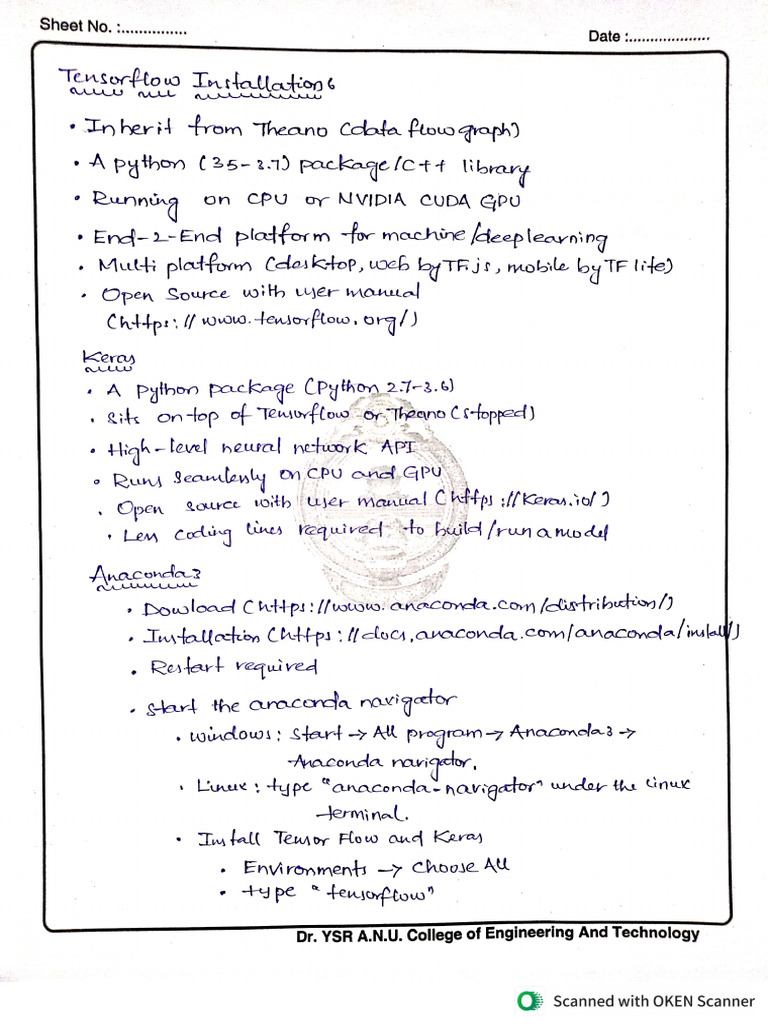 Sheet No. :...............
Date :...................
Tensorflow Installation:
• Inherit from Theano (data flow graph)
• A python (3.5-3.7) package/C++ library
• Running on CPU or NVIDIA CUDA GPU
• End-2-End platform for machine/deeplearning
• Multi platform (desktop, web by TF.js, mobile by TF lite)
• Open Source with user manual
(https://www.tensorflow.org/)
Keras
• A python package (Python 2.7-3.6)
• Sits on top of Tensorflow or Theano (stopped)
• High-level neural network API
• Runs seamlenly on CPU and GPU
• Open source with user manual (https://keras.io/)
• Less coding lines required to build/run a model
Anaconda3
• Dowload (https://www.anaconda.com/distribution/)
• Installation (https://docs.anaconda.com/anaconda/install/)
• Restart required
• start the anaconda navigator
• windows: Start → All program → Anaconda3 →
Anaconda navigator.
• Linux: type "anaconda-navigator" under the linux
terminal.
• Install Tensor Flow and Keras
• Environments → choose All
• type "tensorflow"
Dr. YSR A.N.U. College of Engineering And Technology
Scanned with OKEN Scanner